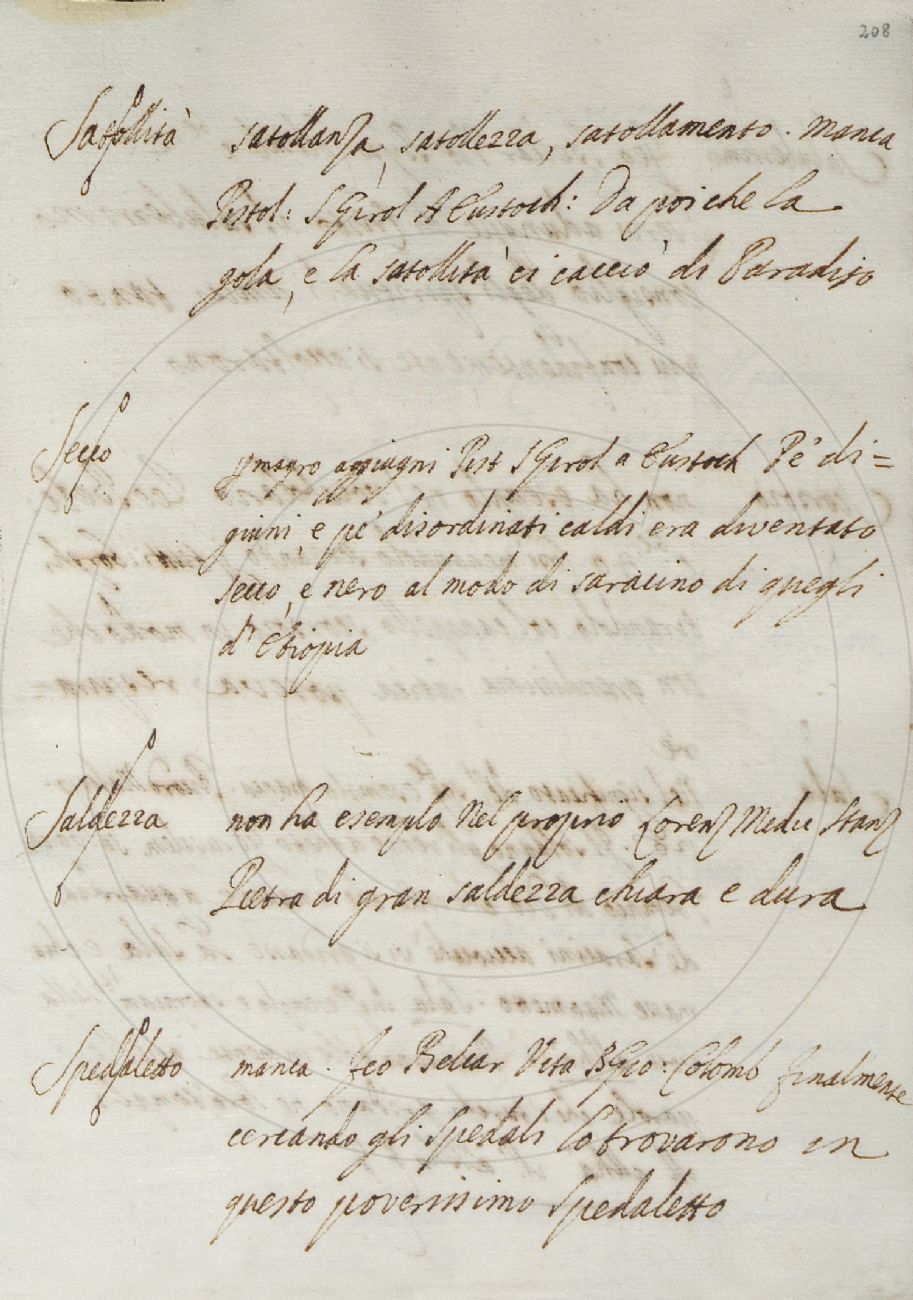 208
Satollità satollanza, satollezza, satollamento. manca
Pistol: S Girol A Eustoch: Da poiche la
gola, e la satollità ci cacciò di Paradiso
Secco p magro aggiugni Pist S Girol a Eustoch Pe' di=
giuni e pe' disordinati caldi era diventato
secco, e nero al modo di saracino di quegli
d'Etiopia
Saldezza non ha esemplo nel proprio. Lorenz Medic Stanz
Pietra di gran saldezza chiara e dura
Spedaletto manca. Feo Belcar Vita B Gio: Colomb finalmente
cercando gli spedali lo trovarono in
questo poverissimo spedaletto